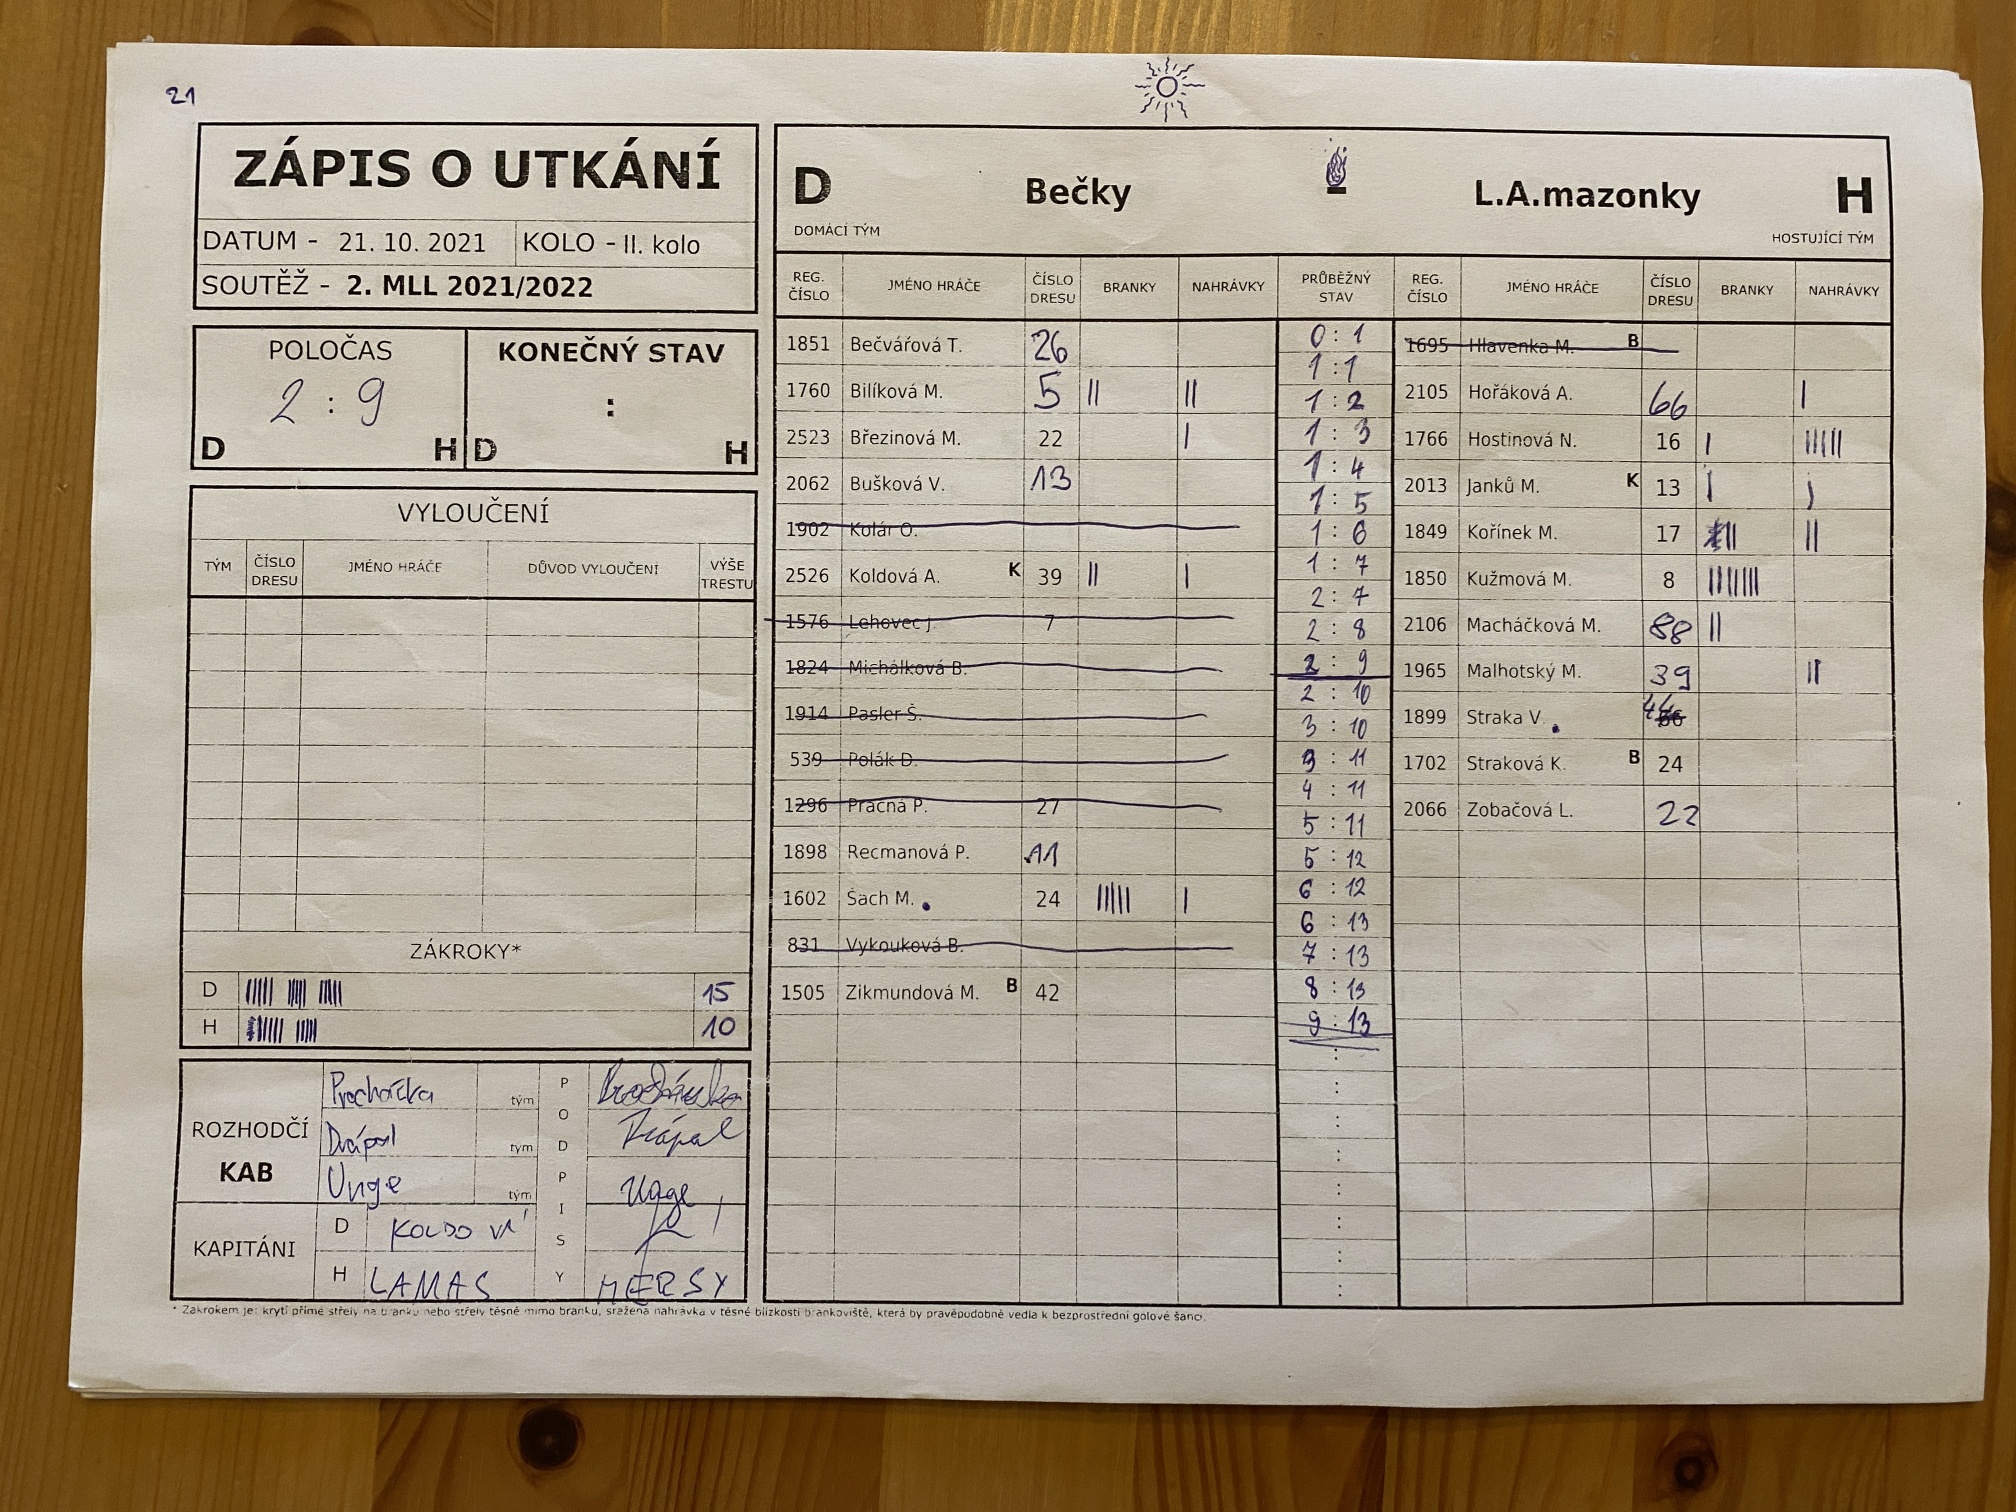 21
ZÁPIS O UTKÁNÍ
DATUM - 21. 10. 2021 KOLO - II. kolo
SOUTĚŽ - 2. MLL 2021/2022
POLOČAS KONEČNÝ STAV
2 : 9 :
D H D H
VYLOUČENÍ
TÝM ČÍSLO DRESU JMÉNO HRÁČE DŮVOD VYLOUČENÍ VÝŠE TRESTU
ZÁKROKY*
D 15
H 10
ROZHODČÍ
KAB
Procházka tým
Drápal tým
Unge tým
PODPISY
Procházka
Drápal
Unge
KAPITÁNI
D KOLDOVÁ
H LAMAS MERSY
D Bečky L.A.mazonky H
DOMÁCÍ TÝM HOSTUJÍCÍ TÝM
REG. ČÍSLO JMÉNO HRÁČE ČÍSLO DRESU BRANKY NAHRÁVKY PRŮBĚŽNÝ STAV REG. ČÍSLO JMÉNO HRÁČE ČÍSLO DRESU BRANKY NAHRÁVKY
1851 Bečvářová T. 26
1760 Bilíková M. 5 || ||
2523 Březinová M. 22 |
2062 Bušková V. 13
1902 Kolár O.
2526 Koldová A. K 39 || |
1576 Lehovec J. 7
1824 Michálková B.
1914 Pasler Š.
539 Polák D.
1296 Pračná P. 27
1898 Recmanová P. 11
1602 Šach M. 24 ||||| |
831 Vykouková B.
1505 Zikmundová M. B 42
0 : 1
1 : 1
1 : 2
1 : 3
1 : 4
1 : 5
1 : 6
1 : 7
2 : 7
2 : 8
2 : 9
2 : 10
3 : 10
3 : 11
4 : 11
5 : 11
5 : 12
6 : 12
6 : 13
7 : 13
8 : 13
9 : 13
1695 Hlavenka M. B
2105 Hořáková A. 66 |
1766 Hostinová N. 16 | |||||
2013 Janků M. K 13 | |
1849 Kořínek M. 17 || ||
1850 Kužmová M. 8 |||||||
2106 Macháčková M. 88 ||
1965 Malhotský M. 39 ||
1899 Straka V. 44
1702 Straková K. B 24
2066 Zobačová L. 22
* Zákrokem je: krytí přímé střely na branku nebo střely těsně mimo branku, sražená nahrávka v těsné blízkosti brankoviště, která by pravěpodobně vedla k bezprostřední gólové šanci.